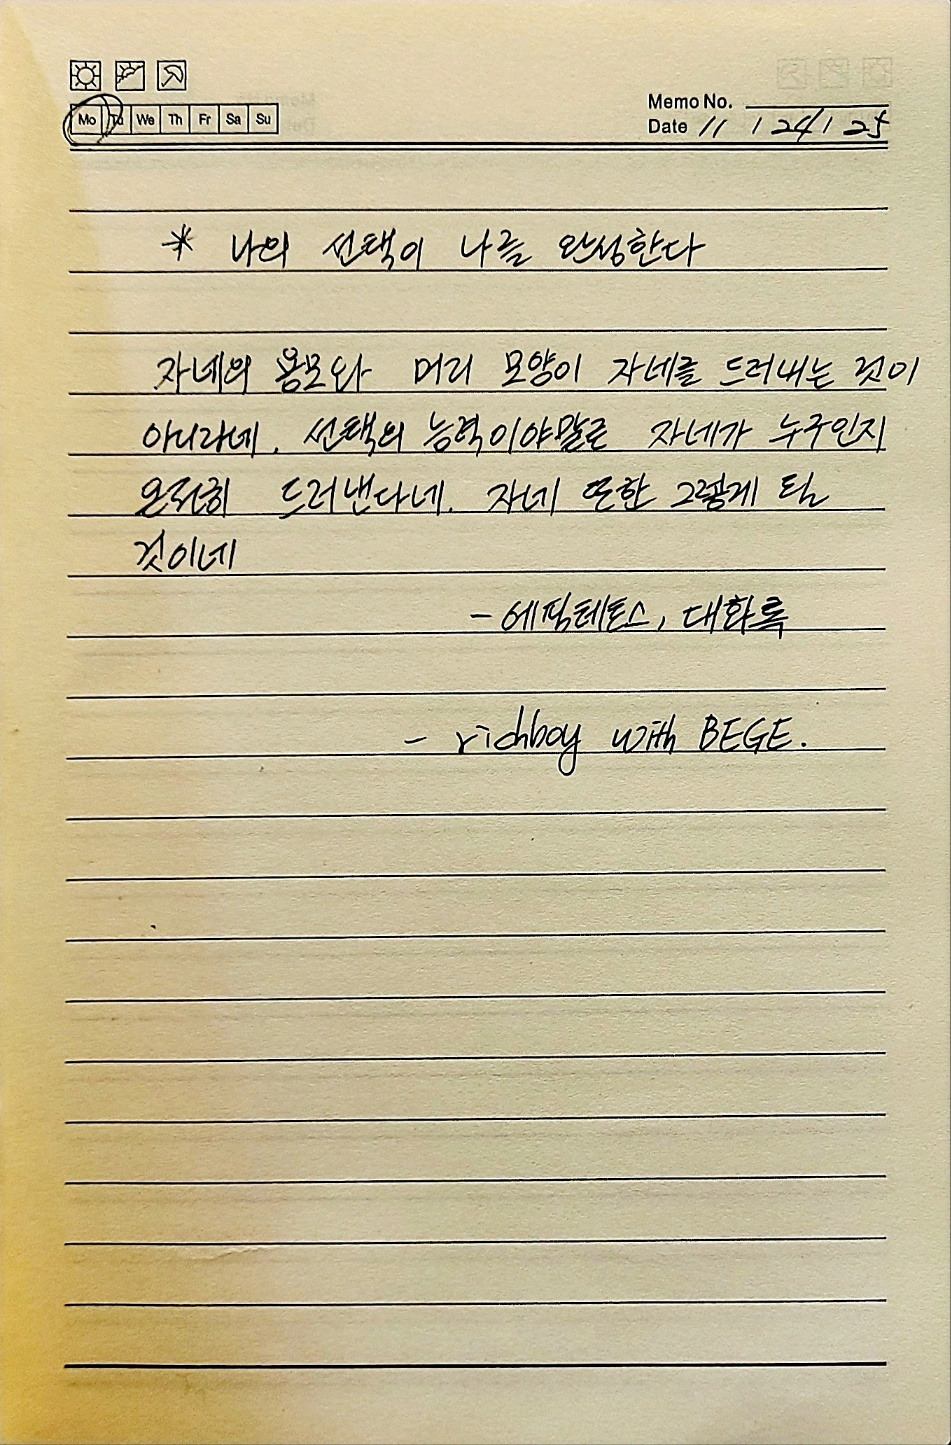 Mo Tu We Th Fr Sa Su
Memo No.
Date 11 / 24 / 25
* 나의 선택이 나를 완성한다
자네의 용모와 머리 모양이 자네를 드러내는 것이
아니라네. 선택의 능력이야말로 자네가 누구인지
온전히 드러낸다네. 자네 또한 그렇게 될
것이네
- 에픽테토스, 대화록
- richboy with BEGE.